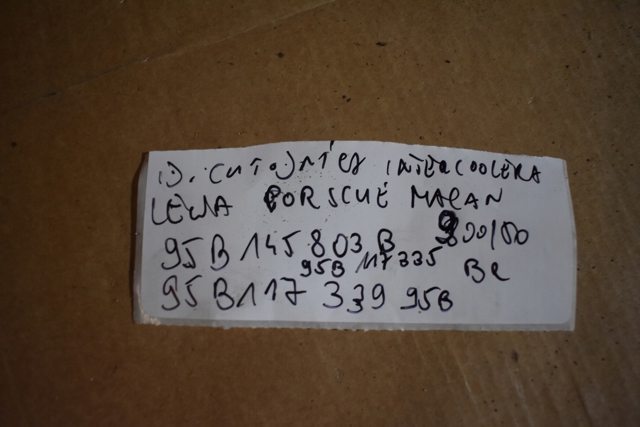 INTERCOOLERA
LEWA PORSCHE MACAN
95B 145 803 B 900/50
95B 117 335 BR
95B117 339 95B